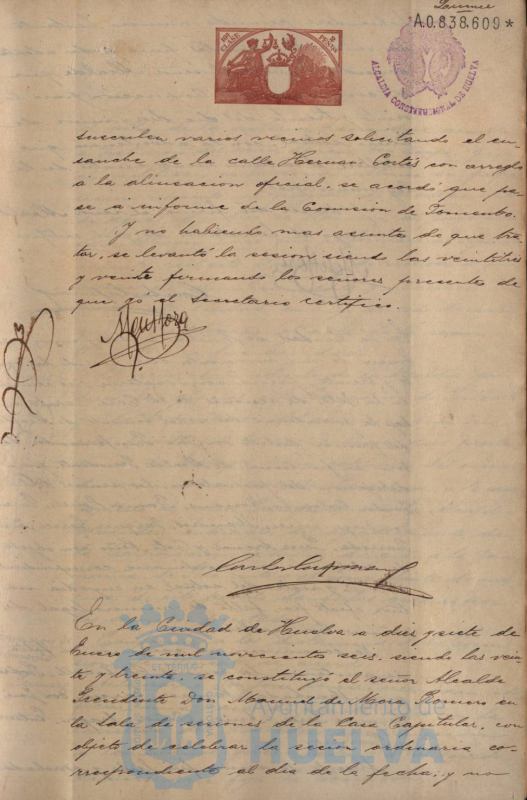 A.0.838.609*
10ª CLASE 2 PESETAS
ALCALDIA CONSTITUCIONAL DE HUELVA
suscriben varios vecinos solicitando el en-
sanche de la calle Hernan Cortés con arreglo
á la alineacion oficial, se acordó que pa-
se a informe de la Comisión de Fomento.
Y no habiendo mas asunto de que tra-
tar, se levantó la sesion siendo las veintitres
y veinte firmando los señores presentes de
que yó el Secretario certifico.
En la Ciudad de Huelva a diez y siete de
Enero de mil novecientos seis, siendo las vein-
te y treinta, se constituyó el señor Alcalde
Presidente Don Manuel de Mora Romero en
la Sala de sesiones de la Casa Capitular, con
objeto de celebrar la sesion ordinaria co-
rrespondiente al día de la fecha; y no
Ayuntamiento de
HUELVA